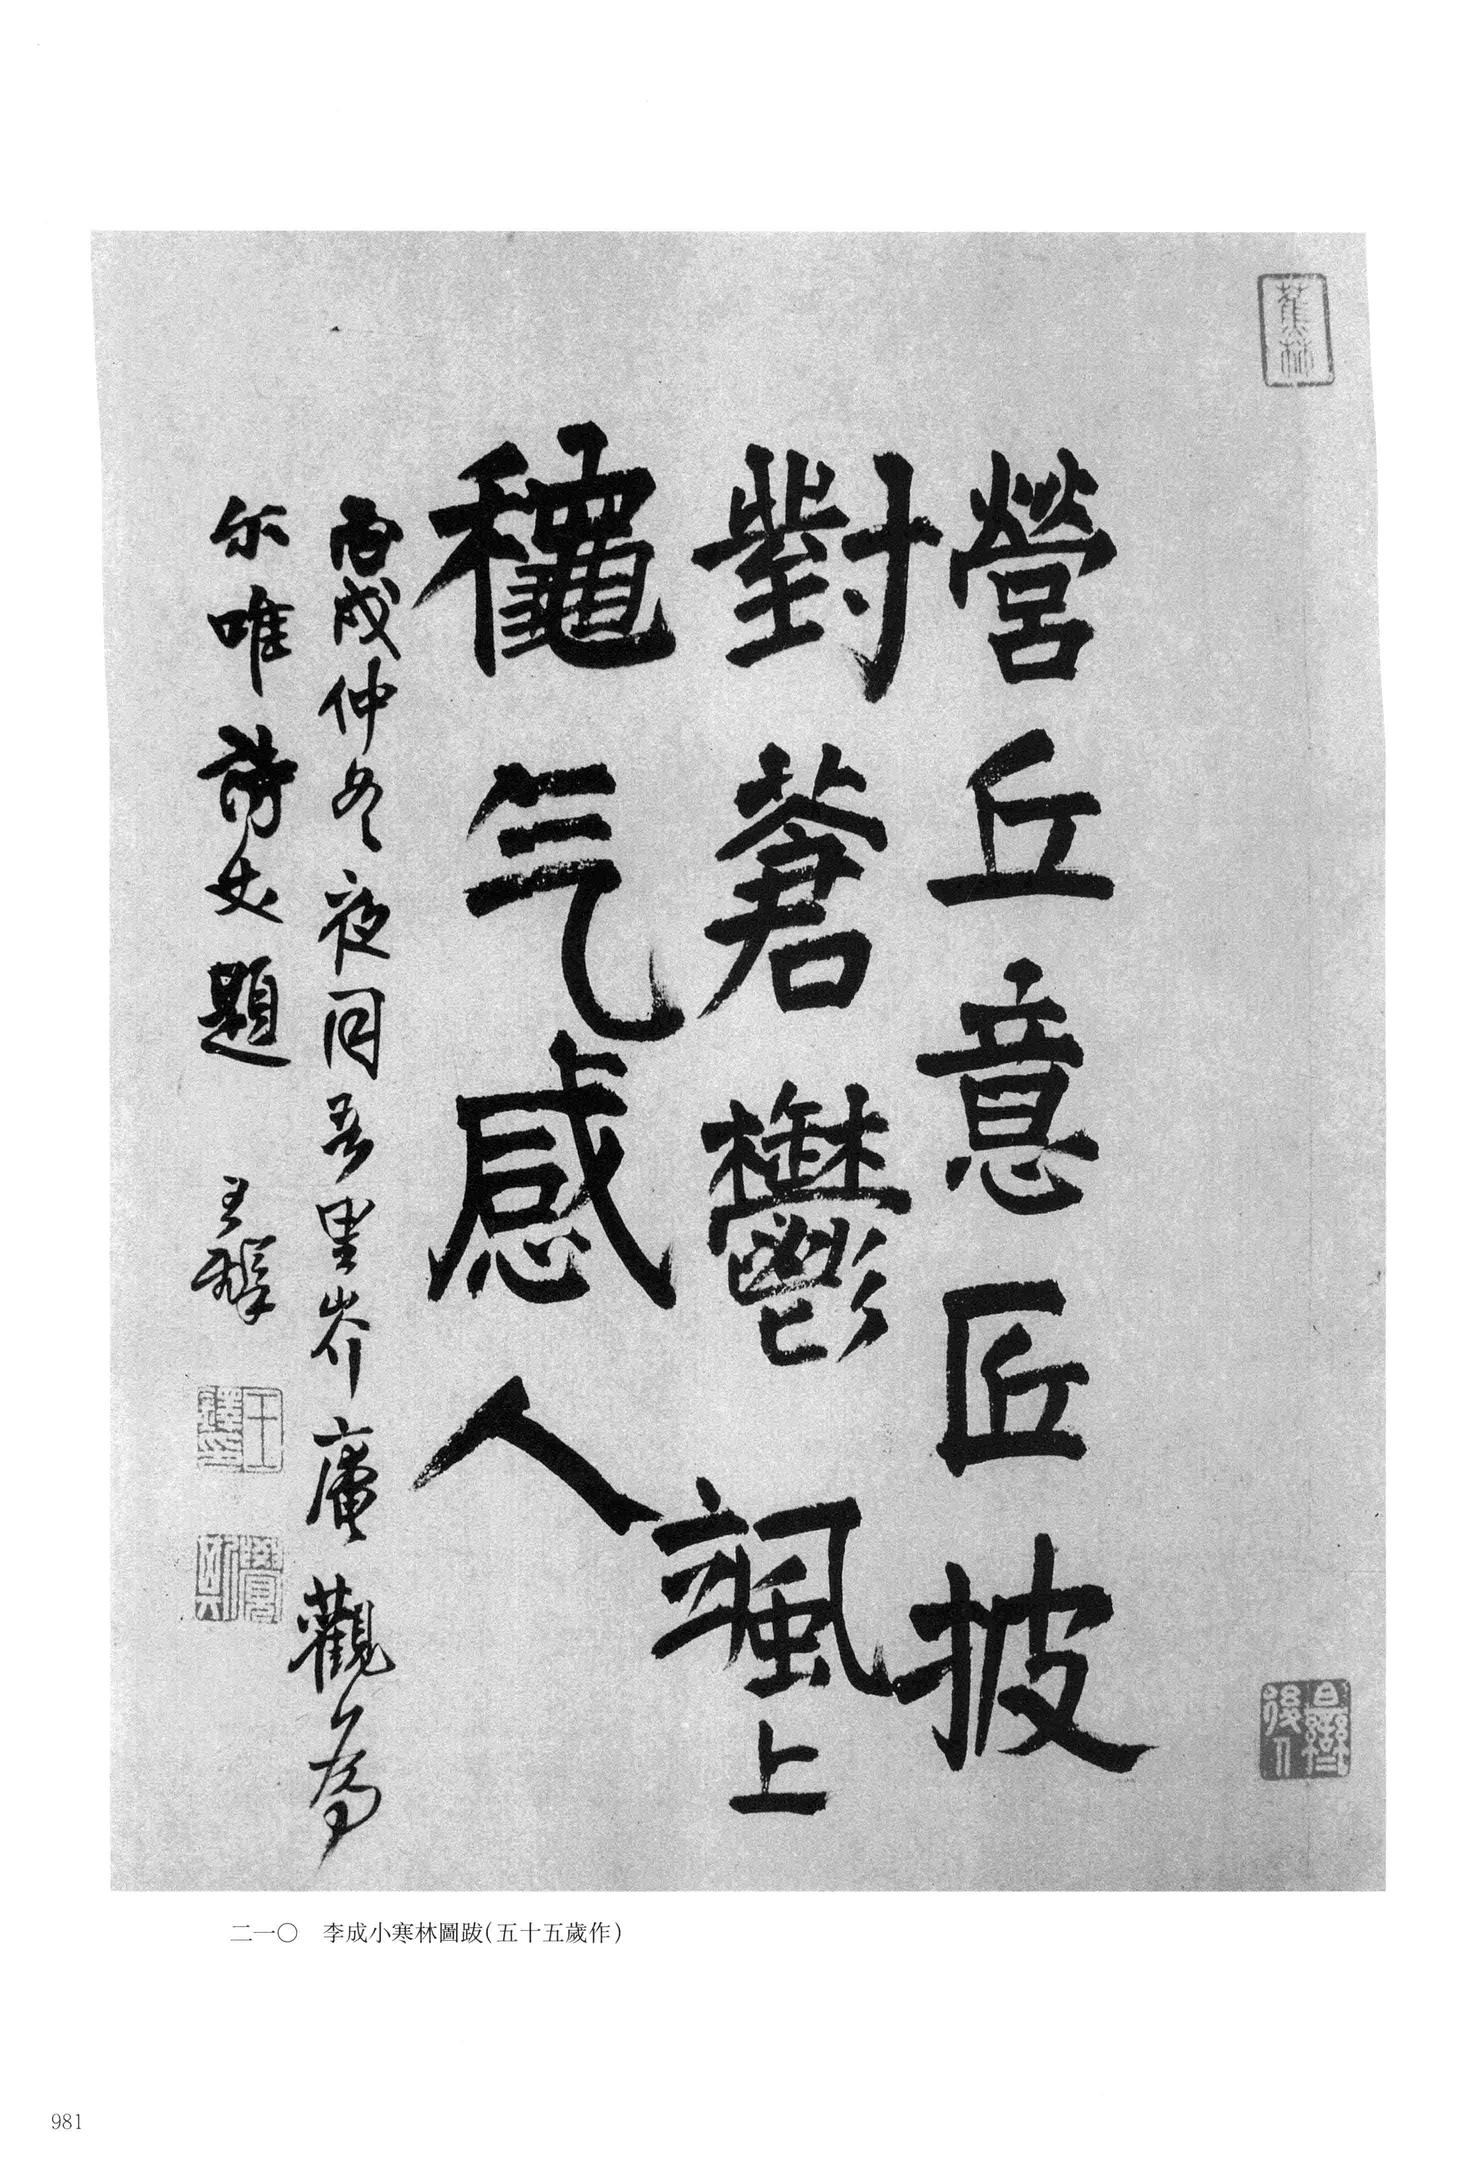 營丘意匠披
對蒼鬱颯上
龝气感人
丙戌仲冬夜同吾里岑庵觀為
尔唯詞丈題 王鐸
蕉林
王鐸印
二一〇 李成小寒林圖跋(五十五歲作)
981